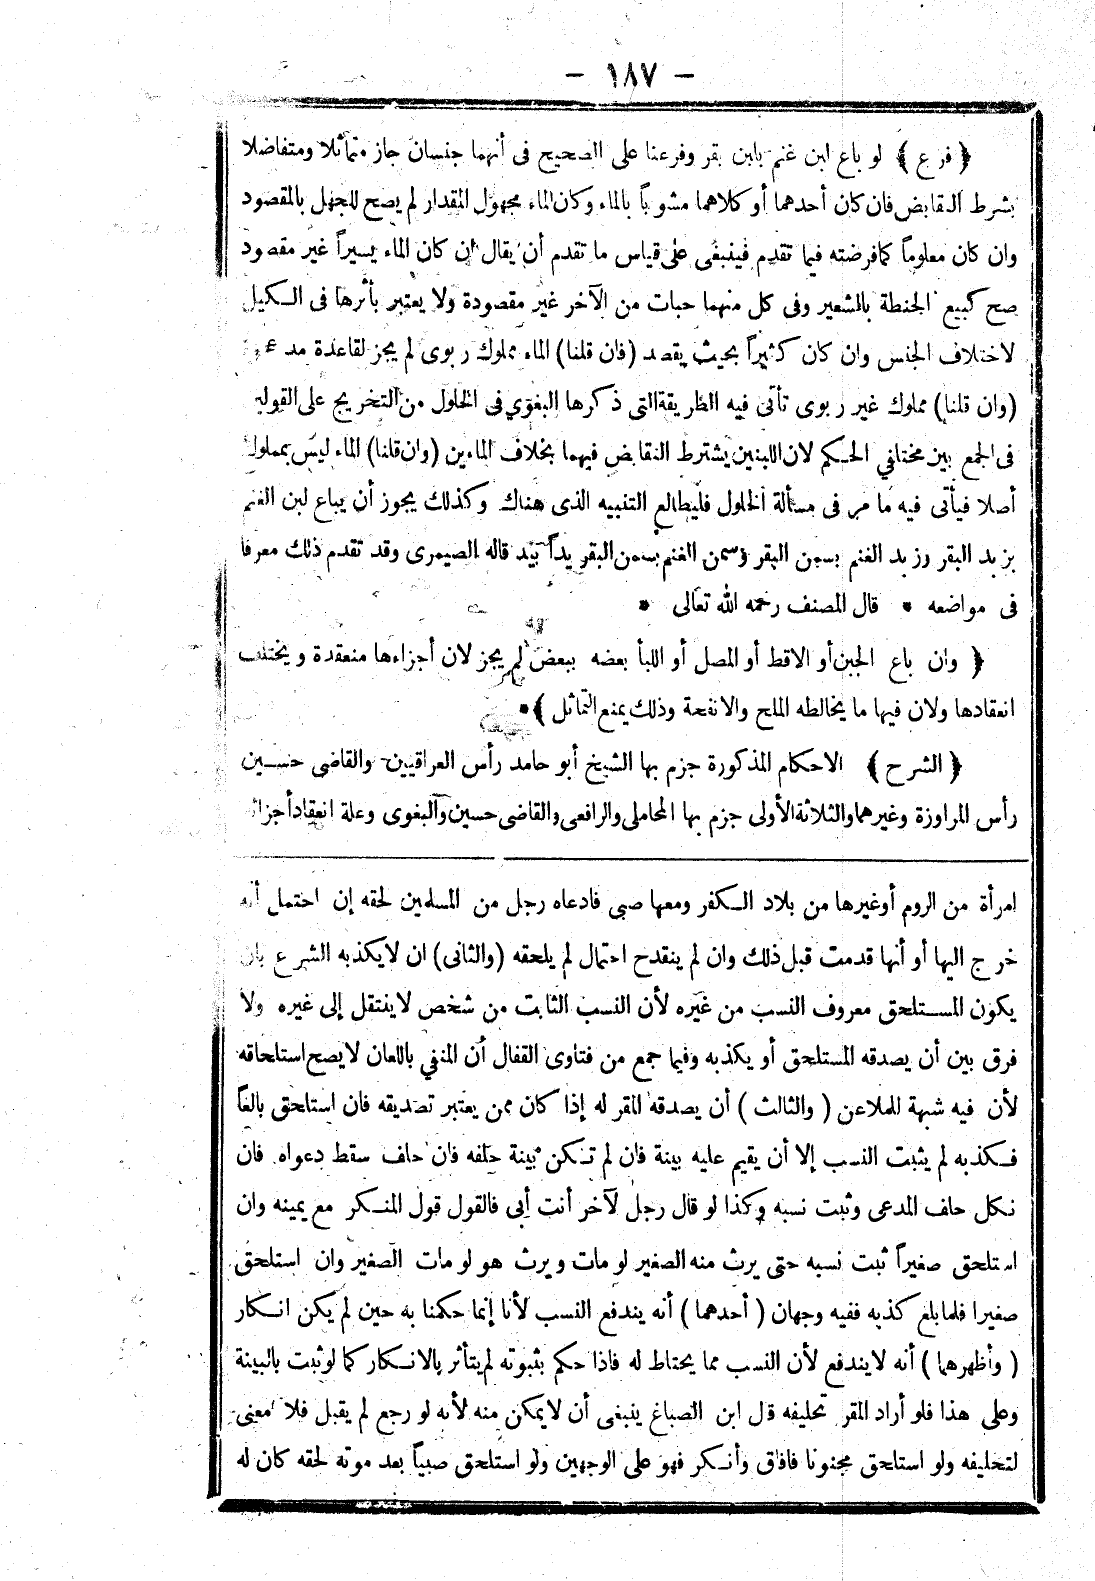 — ١٨٧ —
﴿ فرع ﴾ لو باع لبن غنم بلبن بقر وفرعنا على الصحيح فى أنهما جنسان جاز متماثلا ومتفاضلا
بشرط التقابض فان كان أحدهما أو كلاهما مشوباً بالماء وكان الماء مجهول المقدار لم يصح للجهل بالمقصود
وان كان معلوماً كما فرضته فيما تقدم فينبغى على قياس ما تقدم أن يقال ان كان الماء يسيراً غير مقصود
صح كبيع الحنطة بالشعير وفى كل منهما حبات من الآخر غير مقصودة ولا يعتبر تأثرها فى الكيل
لاختلاف الجنس وان كان كثيراً بحيث يقصد (فان قلنا) الماء مملوك ربوى لم يجز لقاعدة مد
(وان قلنا) مملوك غير ربوى تأتى فيه الطريقة التى ذكرها البغوي فى الخلول من التخريج على القولين
فى الجمع بين مختلفي الحكم لان اللبنين يشترط التقابض فيهما بخلاف الماءين (وان قلنا) الماء ليس بمملوك
أصلا فيأتى فيه ما مر فى مسألة الخلول فليطالع التنبيه الذى هناك وكذلك يجوز أن يباع لبن الغنم
بزبد البقر وزبد الغنم بسمن البقر وسمن الغنم بسمن البقر يداً بيد قاله الصيمرى وقد تقدم ذلك معرفا
فى مواضعه * قال المصنف رحمه الله تعالى *
﴿ وان باع الجبن أو الاقط أو المصل أو اللبأ بعضه ببعض لم يجز لان أجزاءها منعقدة ويختلف
انعقادها ولان فيها ما يخالطه الملح والانفحة وذلك يمنع التماثل ﴾ *
﴿ الشرح ﴾ الاحكام المذكورة جزم بها الشيخ أبو حامد رأس العراقيين والقاضى حسين
رأس المراوزة وغيرهما والثلاثة الأولى جزم بها المحاملى والرافعى والقاضى حسين والبغوى وعلة انعقاد أجزائه
امرأة من الروم أو غيرها من بلاد الكفر ومعها صبى فادعاه رجل من المسلمين لحقه إن احتمل أنه
خرج اليها أو أنها قدمت قبل ذلك وان لم ينقدح احتمال لم يلحقه (والثانى) ان لا يكذبه الشرع بان
يكون المستلحق معروف النسب من غيره لأن النسب الثابت من شخص لا ينتقل إلى غيره ولا
فرق بين أن يصدقه المستلحق أو يكذبه وفيما جمع من فتاوى القفال أن المنفي باللعان لا يصح استلحاقه
لأن فيه شبهة للملاعن (والثالث) أن يصدقه المقر له إذا كان ممن يعتبر تصديقه فان استلحق بالغاً
فكذبه لم يثبت النسب إلا أن يقيم عليه بينة فان لم تكن بينة حلفه فان حلف سقط دعواه فان
نكل حلف المدعى وثبت نسبه وكذا لو قال رجل لآخر أنت أبى فالقول قول المنكر مع يمينه وان
استلحق صغيراً ثبت نسبه حتى يرث منه الصغير لو مات ويرث هو لو مات الصغير وان استلحق
صغيرا فلما بلغ كذبه ففيه وجهان (أحدهما) أنه يندفع النسب لأنا إنما حكمنا به حين لم يكن انكار
(وأظهرهما) أنه لا يندفع لأن النسب مما يحتاط له فاذا حكم بثبوته لم يتأثر بالانكار كما لو ثبت بالبينة
وعلى هذا فلو أراد المقر تحليفه قال ابن الصباغ ينبغى أن لا يمكن منه لأنه لو رجع لم يقبل فلا معنى
لتحليفه ولو استلحق مجنونا فافاق وأنكر فهو على الوجهين ولو استلحق صبياً بعد موته لحقه كان له